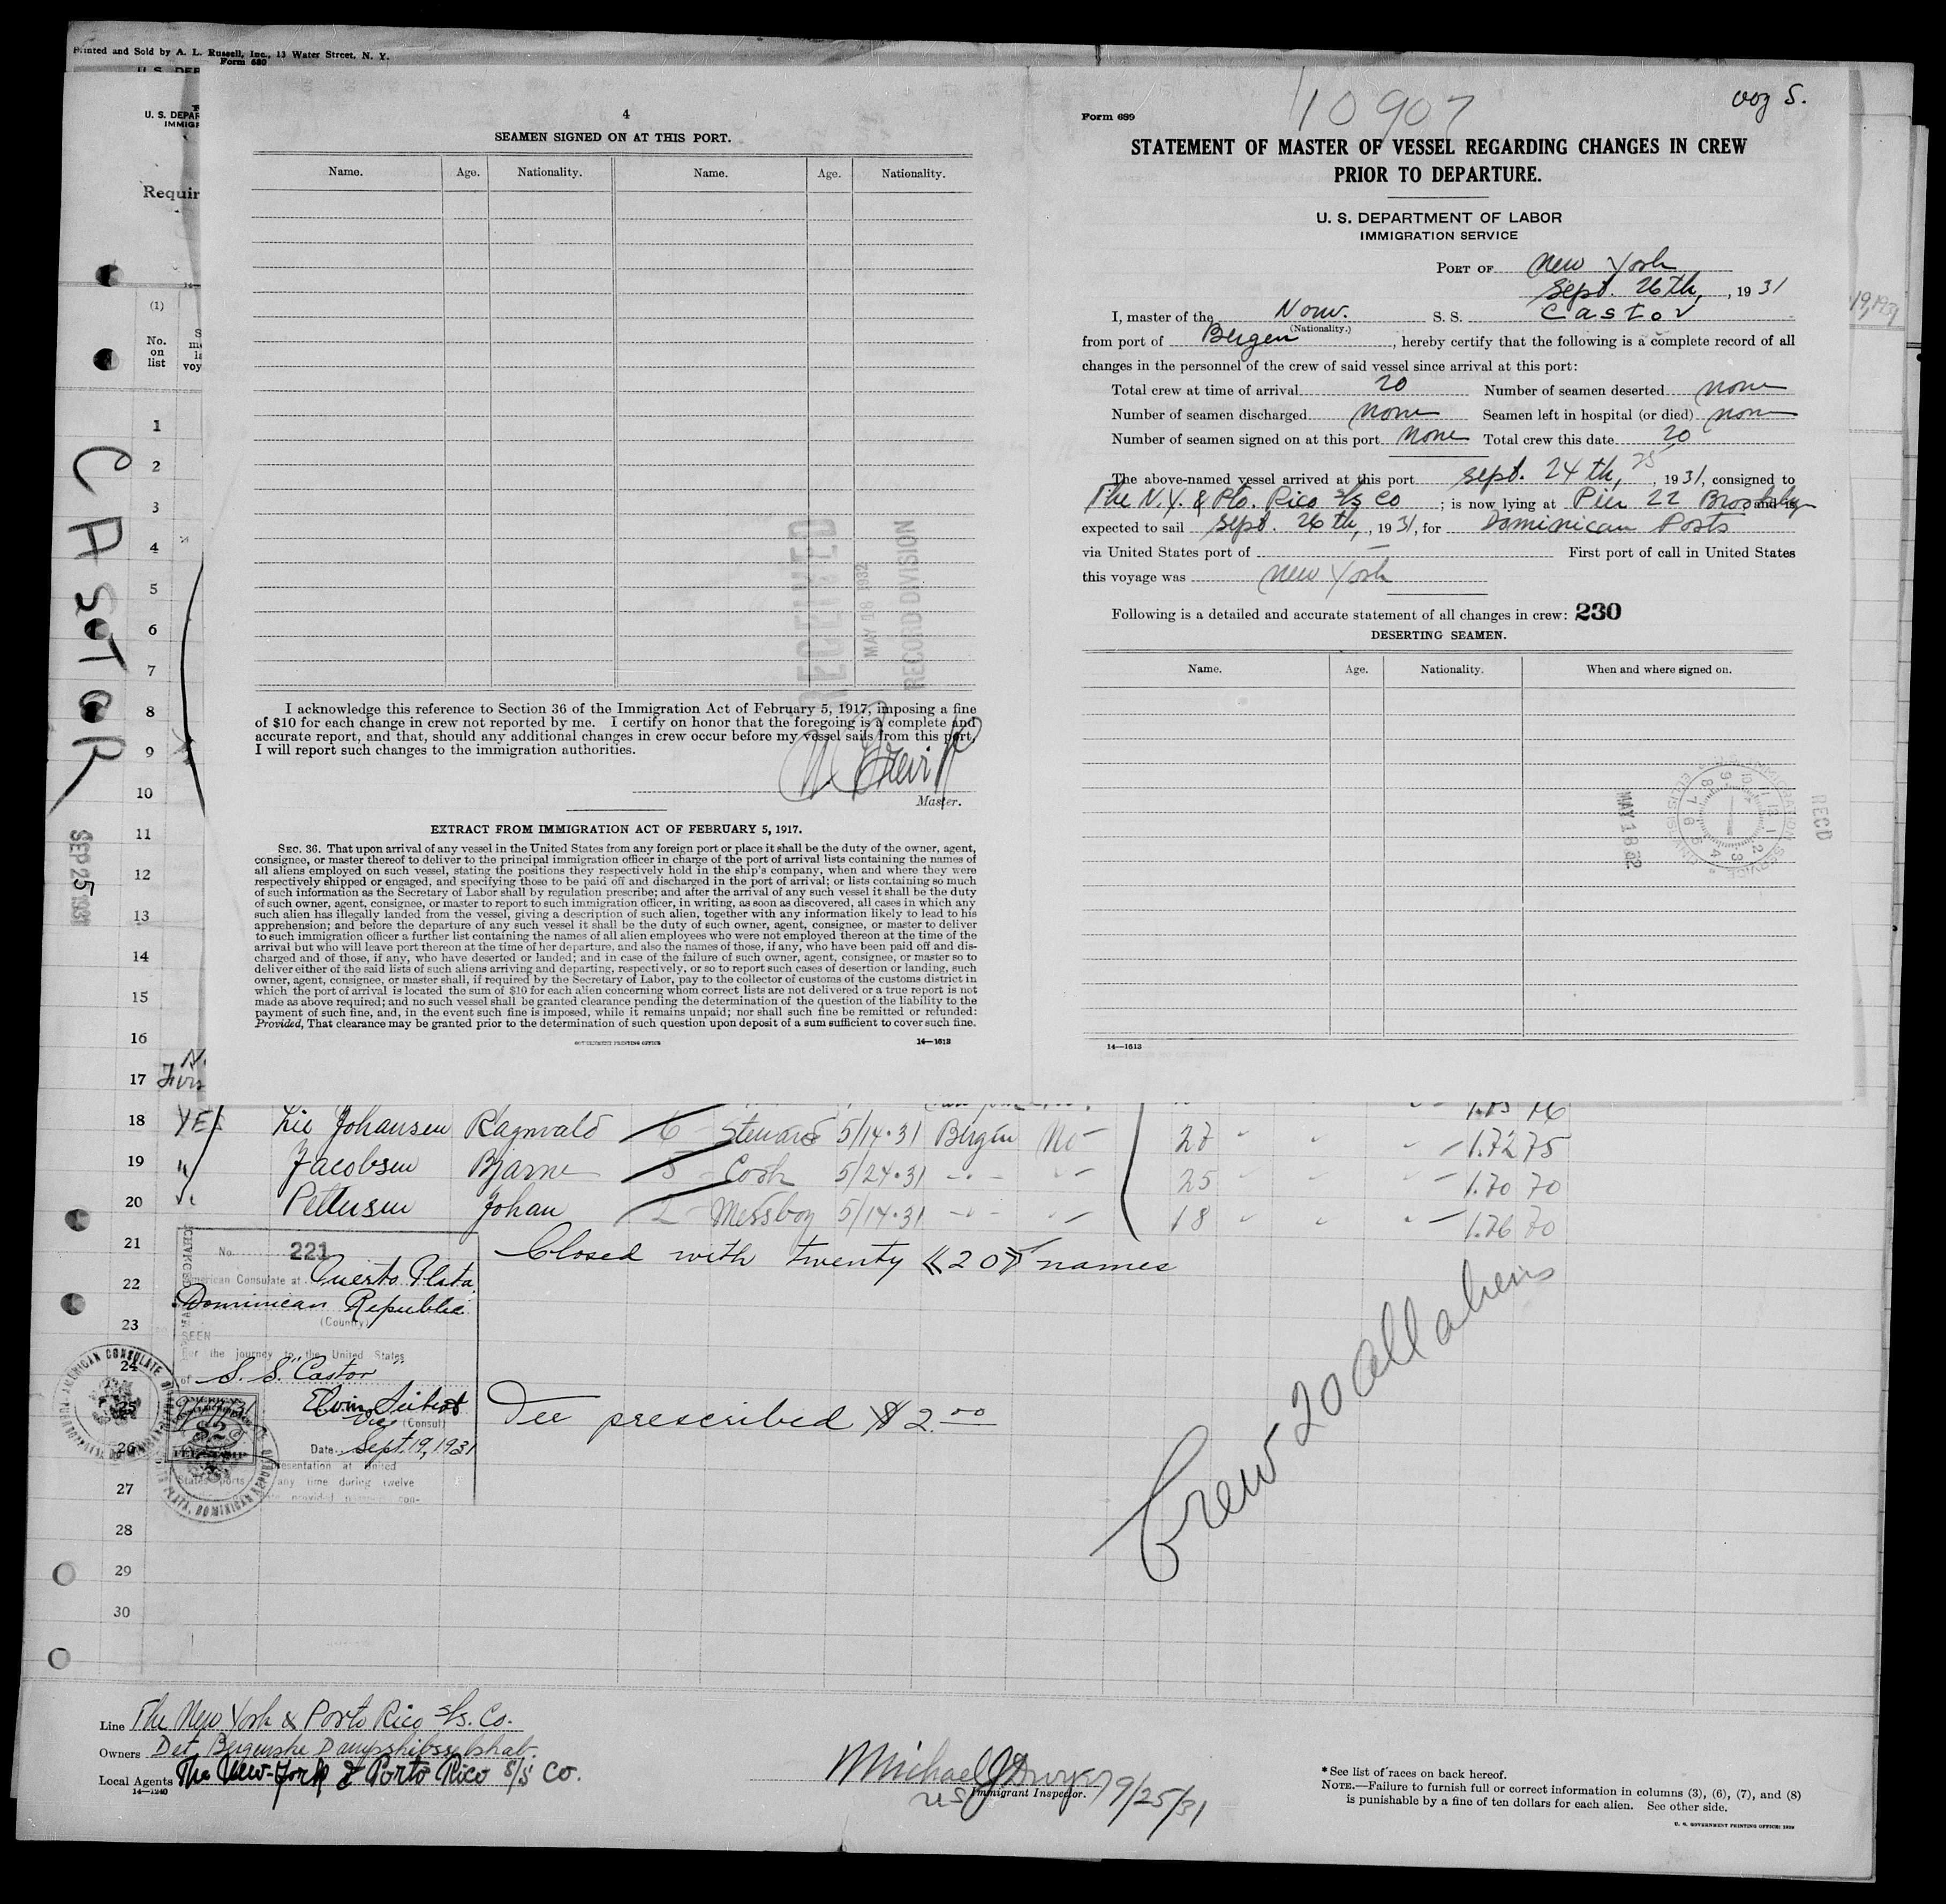 Printed and Sold by A. L. Russell, Inc., 13 Water Street, N. Y.
Form 680
U. S. DEPAR
IMMIGR
Requir
(1)
No.
on
list
1
2
3
4
5
6
7
8
9
10
11
12
13
14
15
16
17
CASTOR
SEP 25 1931
4
SEAMEN SIGNED ON AT THIS PORT.
Name. Age. Nationality. Name. Age. Nationality.
RECEIVED
MAY 18 1932
RECORD DIVISION
I acknowledge this reference to Section 36 of the Immigration Act of February 5, 1917, imposing a fine
of $10 for each change in crew not reported by me. I certify on honor that the foregoing is a complete and
accurate report, and that, should any additional changes in crew occur before my vessel sails from this port,
I will report such changes to the immigration authorities.
Master.
EXTRACT FROM IMMIGRATION ACT OF FEBRUARY 5, 1917.
SEC. 36. That upon arrival of any vessel in the United States from any foreign port or place it shall be the duty of the owner, agent,
consignee, or master thereof to deliver to the principal immigration officer in charge of the port of arrival lists containing the names of
all aliens employed on such vessel, stating the positions they respectively hold in the ship's company, when and where they were
respectively shipped or engaged, and specifying those to be paid off and discharged in the port of arrival; or lists containing so much
of such information as the Secretary of Labor shall by regulation prescribe; and after the arrival of any such vessel it shall be the duty
of such owner, agent, consignee, or master to report to such immigration officer, in writing, as soon as discovered, all cases in which any
such alien has illegally landed from the vessel, giving a description of such alien, together with any information likely to lead to his
apprehension; and before the departure of any such vessel it shall be the duty of such owner, agent, consignee, or master to deliver
to such immigration officer a further list containing the names of all alien employees who were not employed thereon at the time of the
arrival but who will leave port thereon at the time of her departure, and also the names of those, if any, who have been paid off and dis-
charged and of those, if any, who have deserted or landed; and in case of the failure of such owner, agent, consignee, or master so to
deliver either of the said lists of such aliens arriving and departing, respectively, or so to report such cases of desertion or landing, such
owner, agent, consignee, or master shall, if required by the Secretary of Labor, pay to the collector of customs of the customs district in
which the port of arrival is located the sum of $10 for each alien concerning whom correct lists are not delivered or a true report is not
made as above required; and no such vessel shall be granted clearance pending the determination of the question of the liability to the
payment of such fine, and, in the event such fine is imposed, while it remains unpaid; nor shall such fine be remitted or refunded:
Provided, That clearance may be granted prior to the determination of such question upon deposit of a sum sufficient to cover such fine.
GOVERNMENT PRINTING OFFICE 14—1613
10907
voy 5.
Form 689
STATEMENT OF MASTER OF VESSEL REGARDING CHANGES IN CREW
PRIOR TO DEPARTURE.
U. S. DEPARTMENT OF LABOR
IMMIGRATION SERVICE
PORT OF New York
Sept. 26th, , 1931
I, master of the Norw. S. S. Castor
(Nationality.)
from port of Bergen , hereby certify that the following is a complete record of all
changes in the personnel of the crew of said vessel since arrival at this port:
Total crew at time of arrival 20 Number of seamen deserted none
Number of seamen discharged none Seamen left in hospital (or died) none
Number of seamen signed on at this port none Total crew this date 20
The above-named vessel arrived at this port Sept. 24th, 25 , 1931, consigned to
The N.Y. & Pto. Rico S/S Co ; is now lying at Pier 22 Brooklyn and is
expected to sail Sept. 26th, , 1931, for Dominican Ports
via United States port of — First port of call in United States
this voyage was New York
Following is a detailed and accurate statement of all changes in crew: 230
DESERTING SEAMEN.
Name. Age. Nationality. When and where signed on.
RECD
MAY 18 32
14—1613
18 YES Lie Johansen Ragnvald 6 Steward 5/14·31 Bergen No 27 " " " 1.72 75
19 " Jacobsen Bjarne 5 Cook 5/24·31 -"- " 25 " " " 1.70 70
20 " Pettersen Johan 2 Messboy 5/14·31 -"- " 18 " " " 1.76 70
21
22
23
24
25
26
27
28
29
30
Closed with twenty «20» names
No. 221
American Consulate at Puerto Plata,
Dominican Republic
(Country)
SEEN
For the journey to the United States
of S. S. "Castor"
Vice (Consul)
Date Sept. 19, 1931
AMERICAN CONSULATE
$2
Fee prescribed $2.00
Crew 20 all aliens
Line The New York & Porto Rico S/S. Co.
Owners Det Bergenske Dampskibsselskab.
Local Agents The New-York & Porto Rico S/S Co.
14—1240
Michael J Dwyer 9/25/31
US Immigrant Inspector.
* See list of races on back hereof.
NOTE.—Failure to furnish full or correct information in columns (3), (6), (7), and (8)
is punishable by a fine of ten dollars for each alien. See other side.
U. S. GOVERNMENT PRINTING OFFICE: 1929